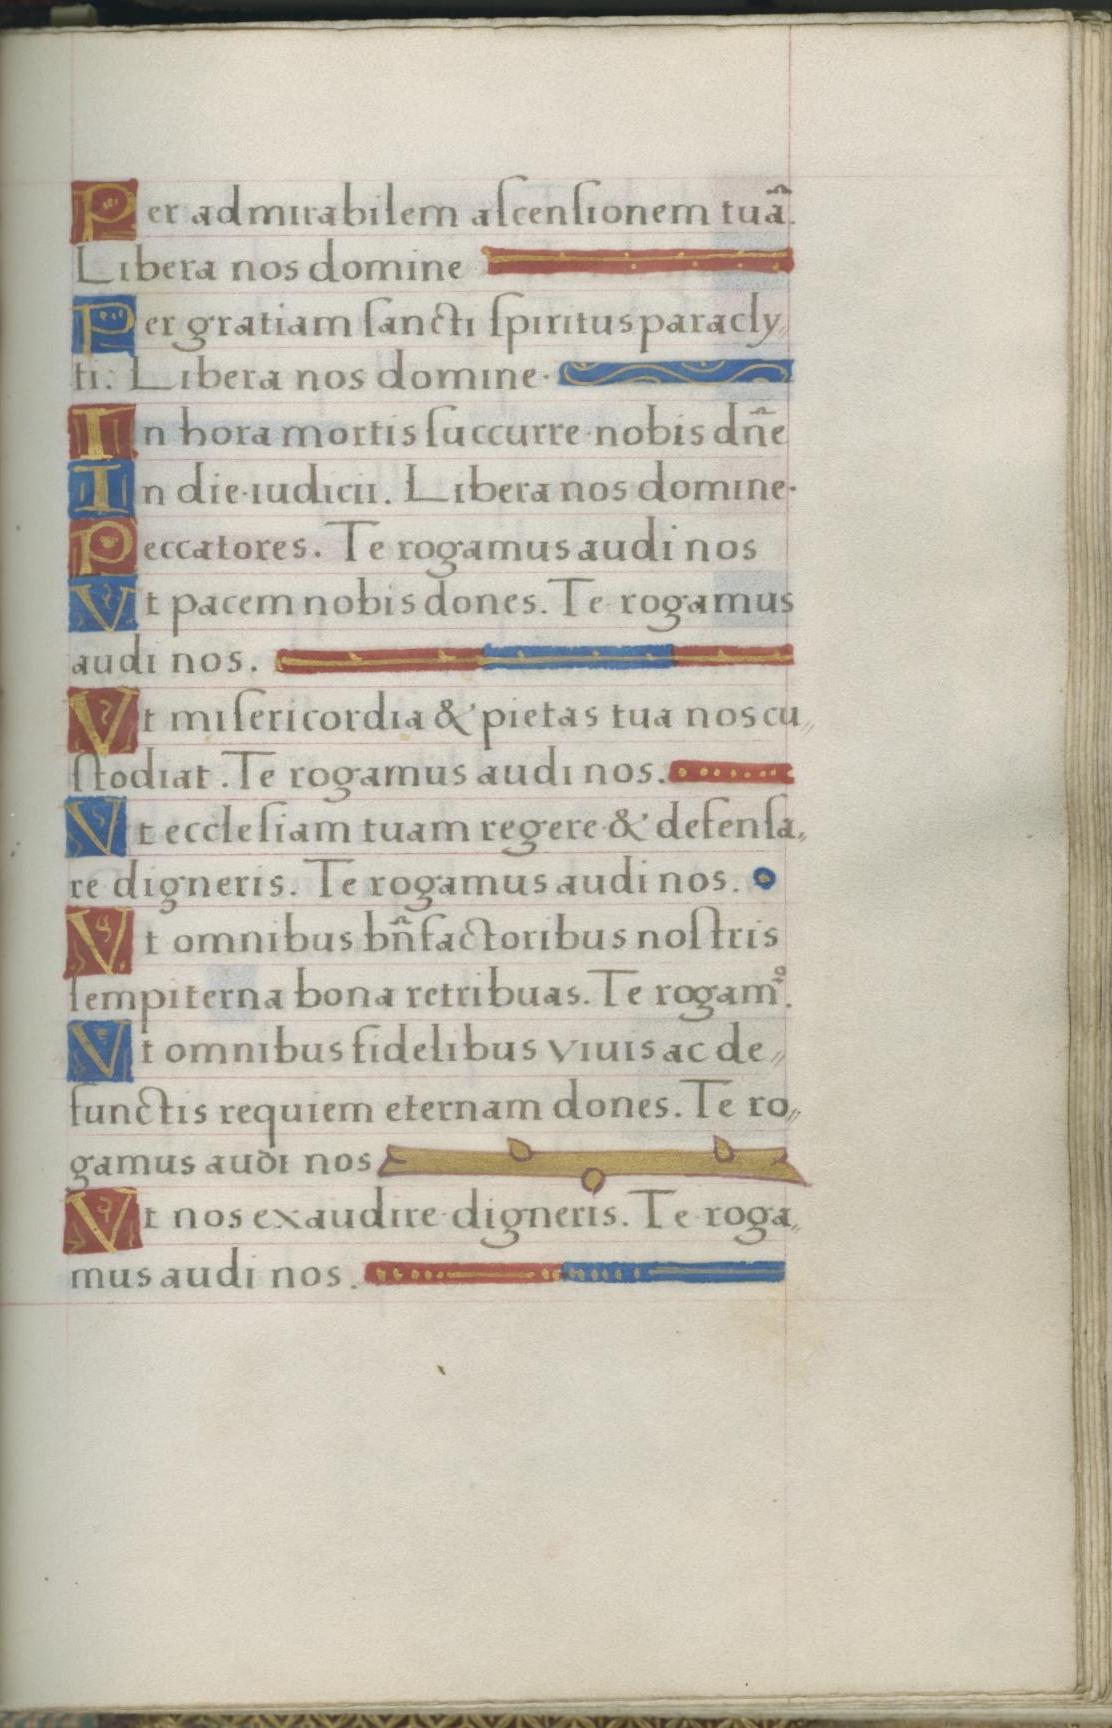 Per admirabilem aſcenſionem tuā.
Libera nos domine
Per gratiam ſancti ſpiritus paracly〃
ti: Libera nos domine·
In hora mortis ſuccurre nobis dn̄e
In die iudicii. Libera nos domine·
Peccatores. Te rogamus audi nos
Vt pacem nobis dones. Te rogamus
audi nos.
Vt miſericordia & pietas tua nos cu〃
ſtodiat. Te rogamus audi nos.
Vt eccleſiam tuam regere & defenſa〃
re digneris. Te rogamus audi nos.
Vt omnibus bn̄factoribus noſtris
ſempiterna bona retribuas. Te rogamꝰ.
Vt omnibus fidelibus viuis ac de〃
functis requiem eternam dones. Te ro〃
gamus audi nos
Vt nos exaudire digneris. Te roga〃
mus audi nos.